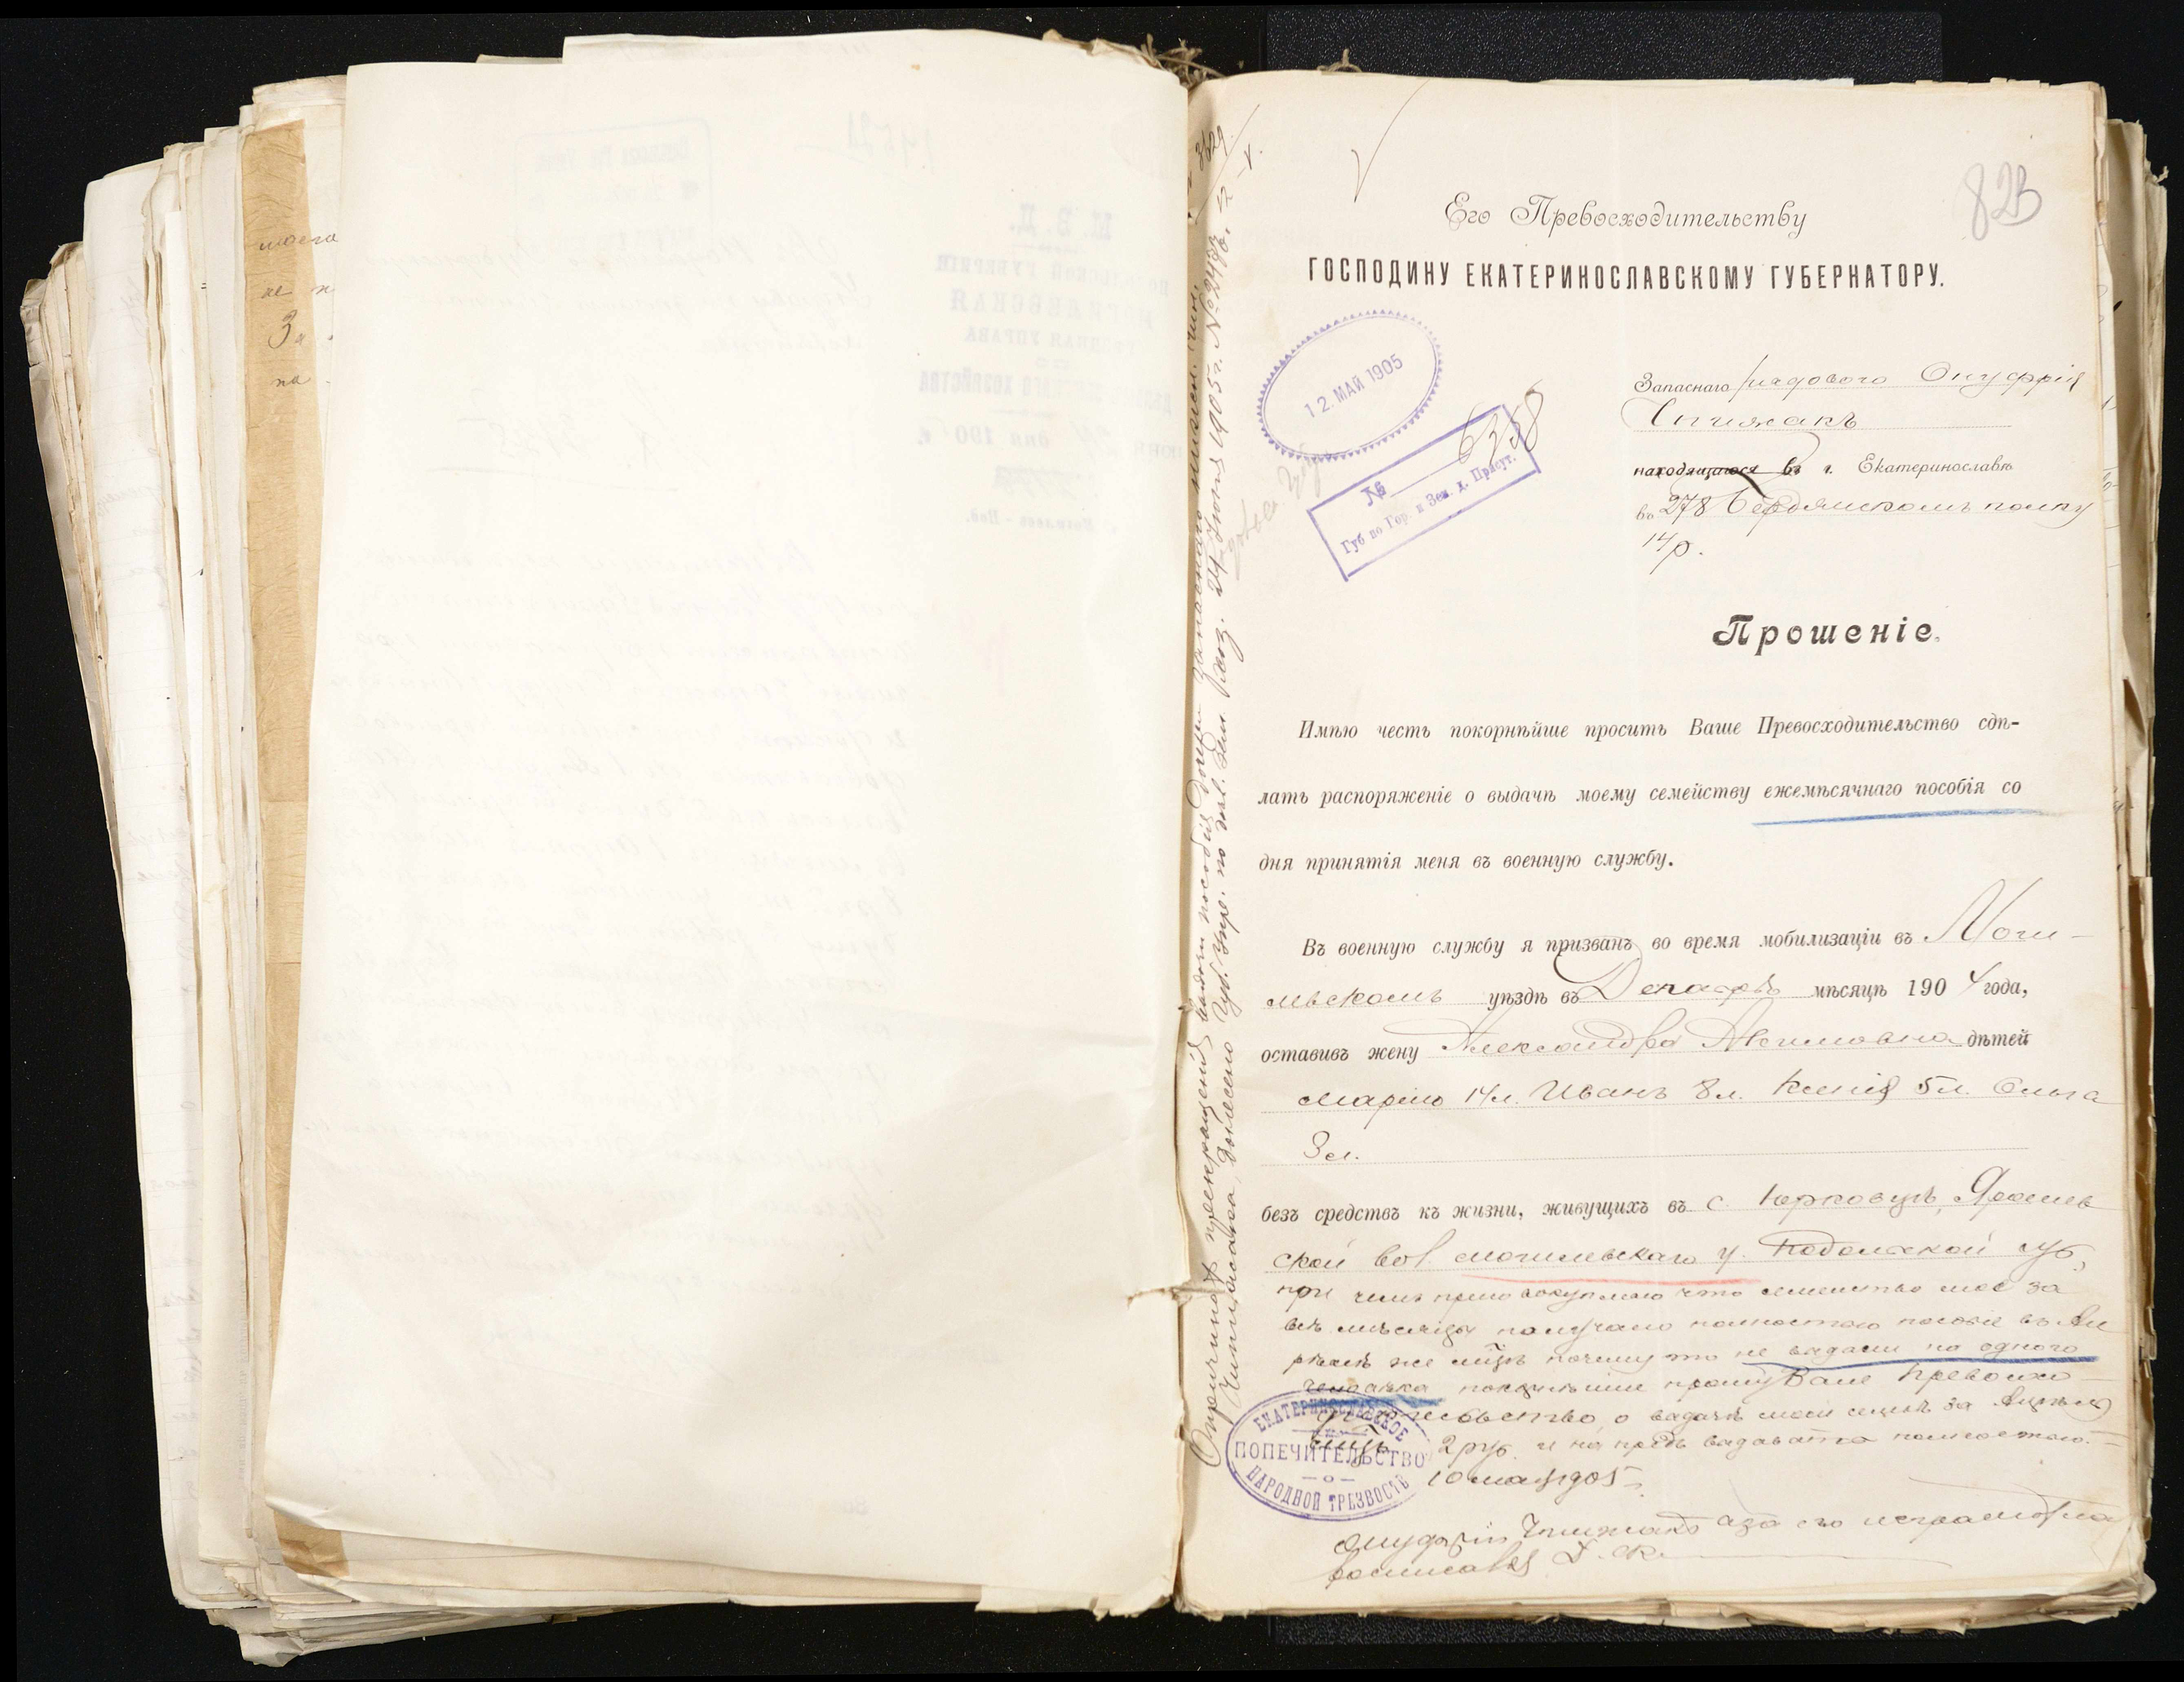 моего
не п
За
на
823
Его Превосходительству
ГОСПОДИНУ ЕКАТЕРИНОСЛАВСКОМУ ГУБЕРНАТОРУ.
12. МАЙ 1905
№ 6358
Губ по Гор. и Зем. д. Присут.
Запаснаго рядового Онуфрія
Чпижакъ
находящагося въ г. Екатеринославѣ
въ 278 Бердянскомъ полку
14 р.
Прошеніе.
Имѣю честь покорнѣйше просить Ваше Превосходительство сдѣ-
лать распоряженіе о выдачѣ моему семейству ежемѣсячнаго пособія со
дня принятія меня въ военную службу.
Въ военную службу я призванъ во время мобилизаціи въ Моги-
льскомъ уѣздѣ въ Декабрѣ мѣсяцѣ 1904 года,
оставивъ жену Александра Акимовна дѣтей
Марію 14 л. Иванъ 8 л. Ксенія 5 л. Ольга
3 л.
безъ средствъ къ жизни, живущихъ въ с. Юрковцѣ, Яроше
ской вол. могилевскаго у. Подольской губ,
при чемъ присовокупляю что семейство мое за
всѣ мѣсяцы получало полностью пособіе въ Ап
рѣлѣ же мцѣ почему то не выдали на одного
человѣка покорнѣйше прошу Ваше Превосхо-
дительство о выдачѣ моей семьѣ за Апрѣль
мцъ 2 руб. и на предъ выдавать полностью.
10 мая 1905 г.
Онуфрій Чпижакъ а за его неграмотна
росписалъ
ЕКАТЕРИНОСЛАВСКОЕ
ПОПЕЧИТЕЛЬСТВО
О
НАРОДНОЙ ТРЕЗВОСТИ
прекращенія выдачи пособія дочери запаснаго нижн. чина
донесено Губ. Упр. по дѣл. зем. хоз. 24 Іюня 1905 г. № 2496.